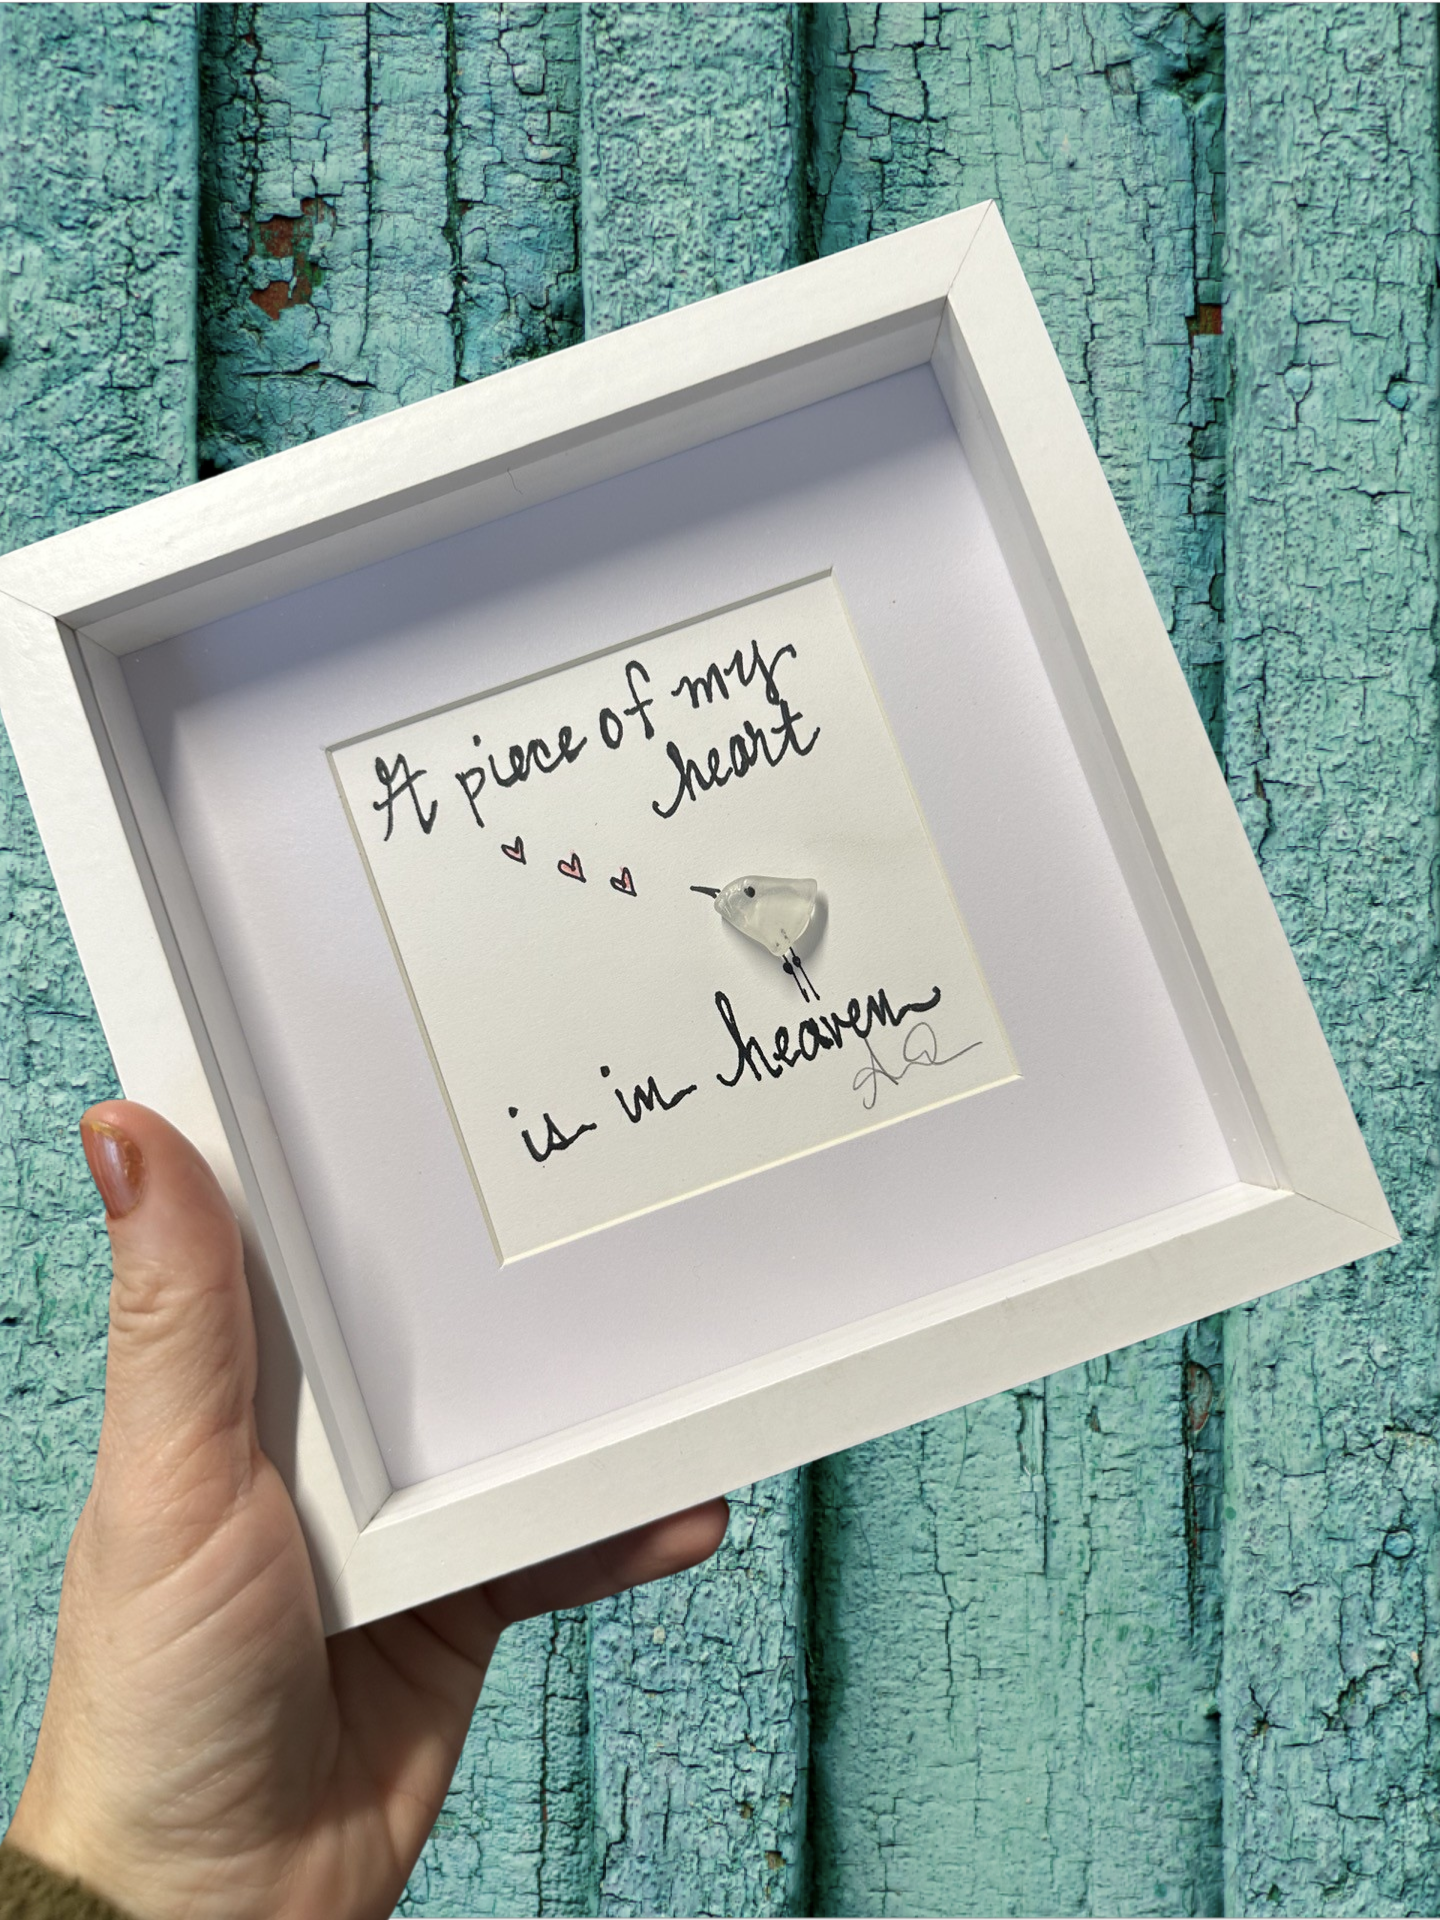 A piece of my
heart
is in heaven